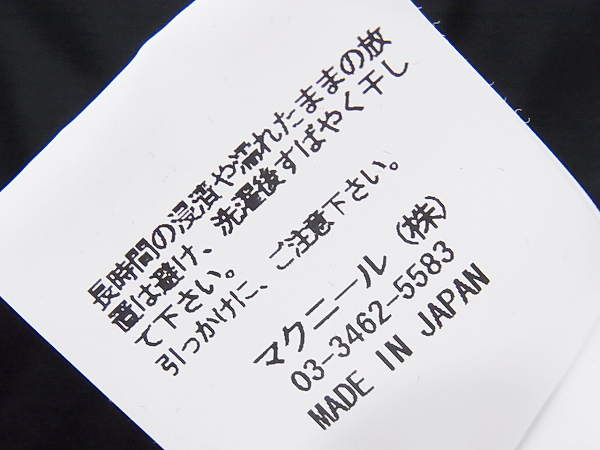 長時間の浸漬や濡れたままの放
置は避け、洗濯後すばやく干し
て下さい。
引っかけに、ご注意下さい。
マクニール（株）
03-3462-5583
MADE IN JAPAN